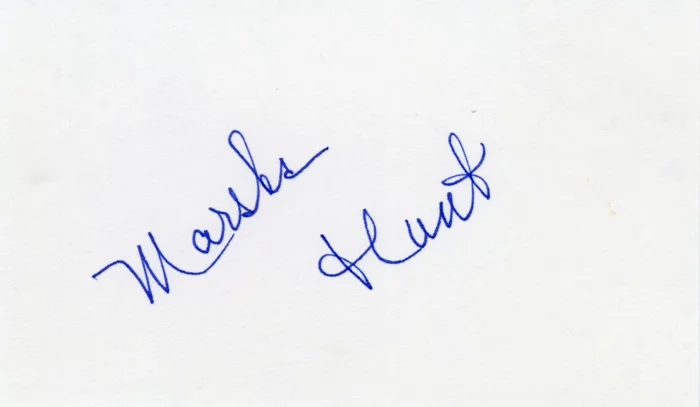 Marsha
Hunt